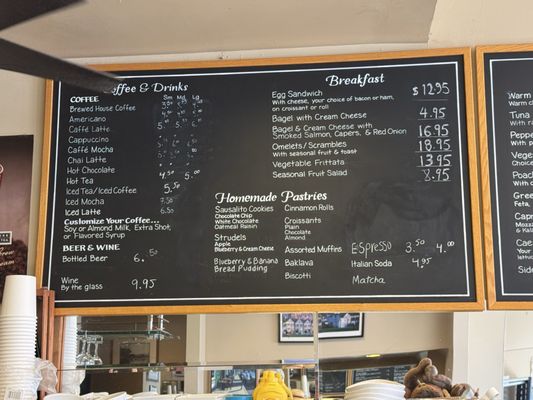 Coffee & Drinks
COFFEE Sm Md Lg
Brewed House Coffee
Americano
Caffé Latte
Cappuccino
Caffé Mocha
Chai Latte
Hot Chocolate 4.50 5.00
Hot Tea 5.50
Iced Tea/Iced Coffee
Iced Mocha 7.50
Iced Latte 6.50
Customize Your Coffee...
Soy or Almond Milk, Extra Shot,
or Flavored Syrup
BEER & WINE
Bottled Beer 6.50
Wine
By the glass 9.95
Breakfast
Egg Sandwich $12.95
With cheese, your choice of bacon or ham,
on croissant or roll
Bagel with Cream Cheese 4.95
Bagel & Cream Cheese with
Smoked Salmon, Capers, & Red Onion 16.95
Omelets / Scrambles 18.95
with seasonal fruit & toast
Vegetable Frittata 13.95
Seasonal Fruit Salad 8.95
Homemade Pastries
Sausalito Cookies
Chocolate Chip
White Chocolate
Oatmeal Raisin
Strudels
Apple
Blueberry & Cream Cheese
Blueberry & Banana
Bread Pudding
Cinnamon Rolls
Croissants
Plain
Chocolate
Almond
Assorted Muffins
Baklava
Biscotti
Espresso 3.50 4.00
Italian Soda 4.95
Matcha
Warm
Warm
Tuna
With
Poac
Greek
Feta,
Capre
Mozza
Caes
Your
Side